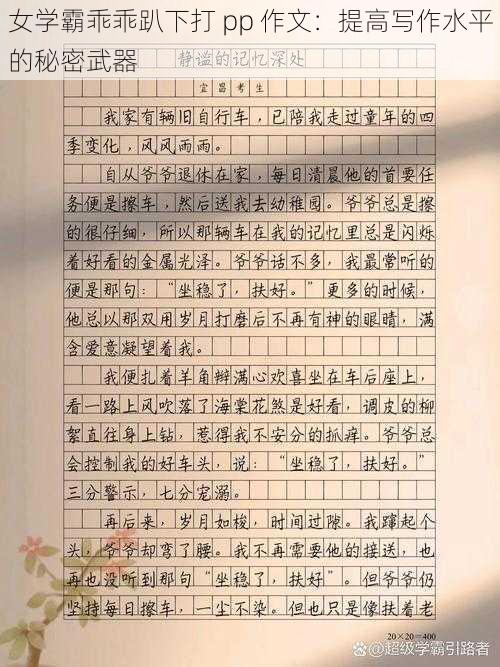 女学霸乖乖趴下打 pp 作文：提高写作水平
的秘密武器
静谧的记忆深处
宜昌考生
我家有辆旧自行车，已陪我走过童年的四
季变化，风风雨雨。
自从爷爷退休在家，每日清晨他的首要任
务便是擦车，然后送我去幼稚园。爷爷总是擦
的很仔细，所以那辆车在我的记忆里总是闪烁
着好看的金属光泽。爷爷话不多，我最常听的
便是那句：“坐稳了，扶好。”更多的时候，
他总以那双用岁月打磨后不再有神的眼睛，满
含爱意凝望着我。
我便扎着羊角辫满心欢喜坐在车后座上，
看一路上风吹落了海棠花煞是好看，调皮的柳
絮直往身上钻，惹得我不安分的抓痒。爷爷总
会控制我的好车头，说：“坐稳了，扶好。”
三分警示，七分宠溺。
再后来，岁月如梭，时间过隙。我蹿起个
头，爷爷却弯了腰。我不再需要他的接送，也
再也没听到那句“坐稳了，扶好”。但爷爷仍
坚持每日擦车，一尘不染。但也只是像扶着老
20×20=400
@超级学霸引路者